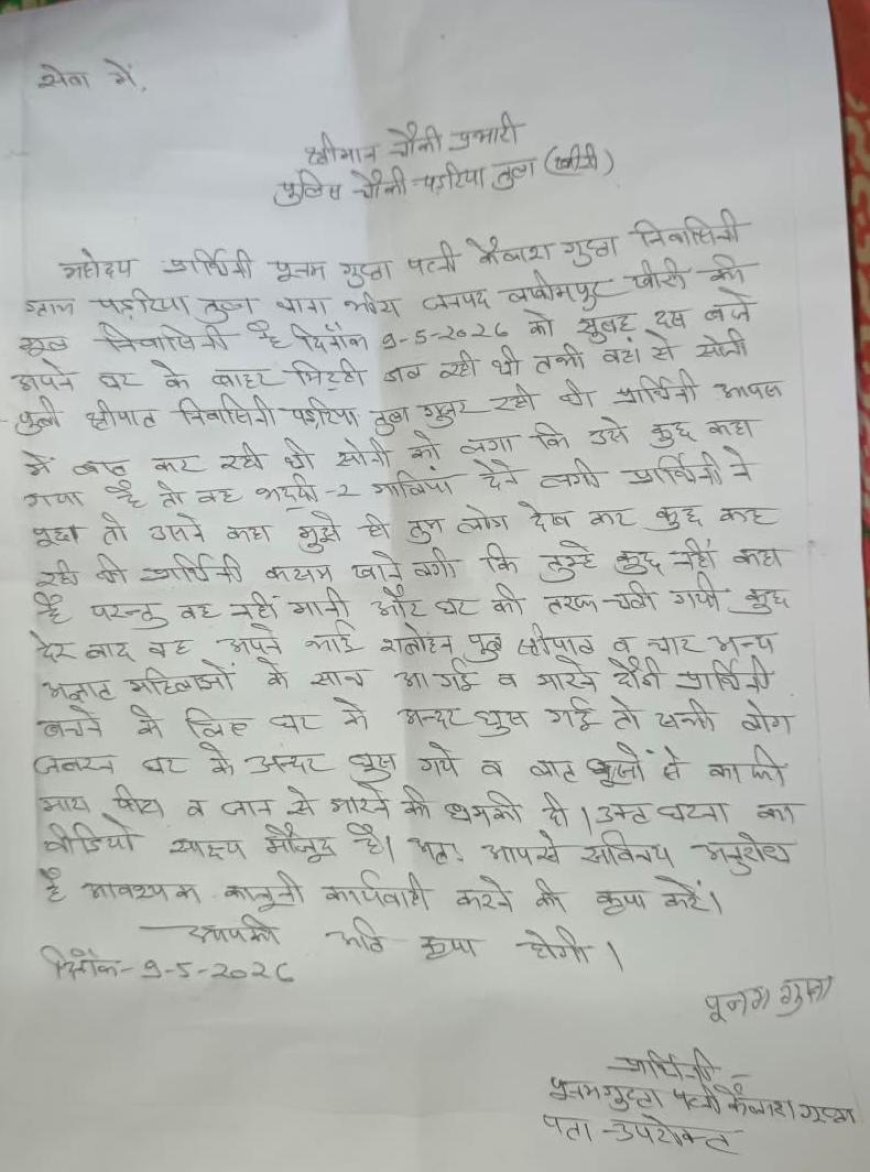 सेवा में,
श्रीमान चौकी प्रभारी
पुलिस चौकी पड़रिया तुला (खीरी)
महोदय प्रार्थिनी पूनम गुप्ता पत्नी कैलाश गुप्ता निवासिनी
ग्राम पड़रिया तुला थाना भीरा जनपद लखीमपुर खीरी की
मूल निवासिनी है दिनाँक 9-5-2026 को सुबह दस बजे
अपने घर के बाहर मिट्टी डाल रही थी तभी वहां से सोनी
पुत्री श्रीपाल निवासिनी पड़रिया तुला गुजर रही थी प्रार्थिनी आपस
में बात कर रही थी सोनी को लगा कि उसे कुछ कहा
गया है तो वह भद्दी-2 गालियां देने लगी प्रार्थिनी ने
पूछा तो उसने कहा मुझे ही तुम लोग देख कर कुछ कह
रही थी प्रार्थिनी कसम खाने लगी कि तुम्हे कुछ नहीं कहा
है परन्तु वह नहीं मानी और घर की तरफ चली गयी कुछ
देर बाद वह अपने भाई पुत्र श्रीपाल व चार अन्य
अज्ञात महिलाओं के साथ आ गई व मारने दौड़ी प्रार्थिनी
बचने के लिए घर के अन्दर घुस गई तो सभी लोग
जबरन घर के अन्दर घुस गये व लात घूसों से काफी
मारा पीटा व जान से मारने की धमकी दी। उक्त घटना का
वीडियो साक्ष्य मौजूद है। अतः आपसे सविनय अनुरोध
है आवश्यक कानूनी कार्यवाही करने की कृपा करें।
आपकी अति कृपा होगी।
दिनाँक- 9-5-2026
पूनम गुप्ता
प्रार्थिनी
पूनम गुप्ता पत्नी कैलाश गुप्ता
पता - उपरोक्त